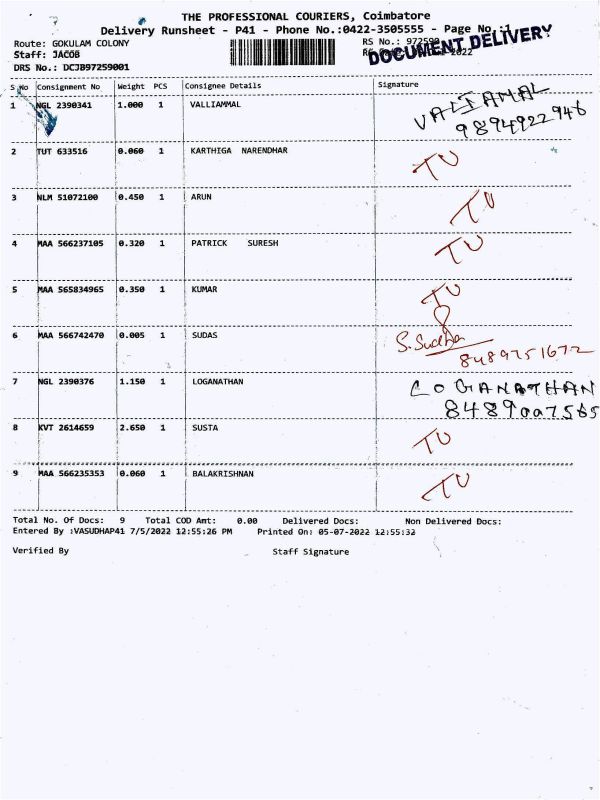 THE PROFESSIONAL COURIERS, Coimbatore
Delivery Runsheet - P41 - Phone No.:0422-3505555 - Page No.:1
Route: GOKULAM COLONY RS No.: 972590
Staff: JACOB 2022
DOCUMENT DELIVERY
DRS No.: DCJB97259001
S No Consignment No Weight PCS Consignee Details Signature
1 NGL 2390341 1.000 1 VALLIAMMAL VALIAMAL
9894922946
2 TUT 633516 0.060 1 KARTHIGA NARENDHAR TU
3 NLM 51072100 0.450 1 ARUN TU
4 MAA 566237105 0.320 1 PATRICK SURESH TU
5 MAA 565834965 0.350 1 KUMAR TU
6 MAA 566742470 0.005 1 SUDAS S.Sudha
8489751672
7 NGL 2390376 1.150 1 LOGANATHAN LOGANATHAN
8489007565
8 KVT 2614659 2.650 1 SUSTA TU
9 MAA 566235353 0.060 1 BALAKRISHNAN TU
Total No. Of Docs: 9 Total COD Amt: 0.00 Delivered Docs: Non Delivered Docs:
Entered By :VASUDHAP41 7/5/2022 12:55:26 PM Printed On: 05-07-2022 12:55:32
Verified By Staff Signature